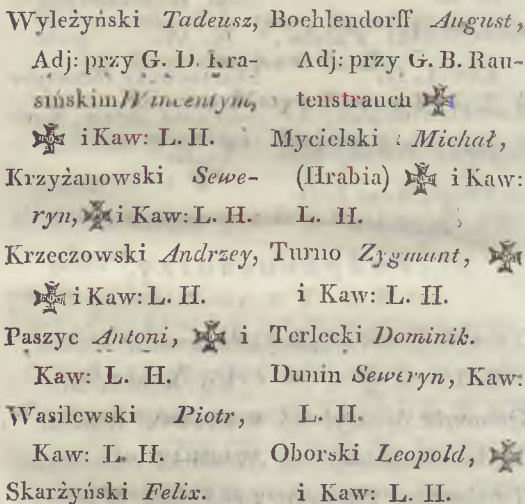 Wyleżyński Tadeusz,
Adj: przy G. D. Kra-
sińskim Wincentym,
✠ i Kaw: L. H.
Krzyżanowski Sewe-
ryn, ✠ i Kaw: L. H.
Krzeczowski Andrzey,
✠ i Kaw: L. H.
Paszyc Antoni, ✠ i
Kaw: L. H.
Wasilewski Piotr,
Kaw: L. H.
Skarżyński Felix.
Boehlendorff August,
Adj: przy G. B. Rau-
tenstrauch ✠
Mycielski Michał,
(Hrabia) ✠ i Kaw:
L. H.
Turno Zygmunt, ✠
i Kaw: L. H.
Terlecki Dominik.
Dunin Seweryn, Kaw:
L. H.
Oborski Leopold, ✠
i Kaw: L. H.